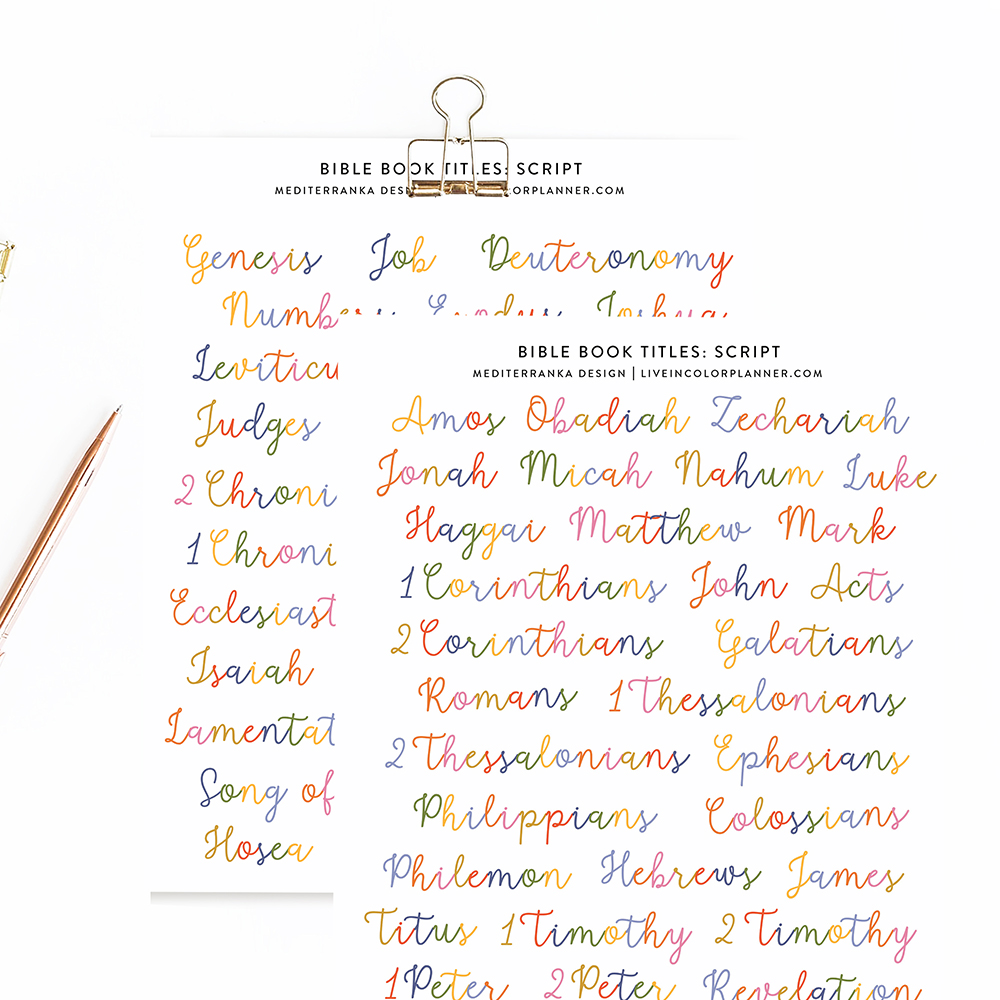 BIBLE BOOK TITLES: SCRIPT
MEDITERRANKA DESIGN COLORPLANNER.COM
Genesis Job Deuteronomy
Numbers Exodus Joshua
Leviticu
Judges
2 Chroni
1 Chroni
Ecclesiast
Isaiah
Lamentat
Song of
Hosea
BIBLE BOOK TITLES: SCRIPT
MEDITERRANKA DESIGN | LIVEINCOLORPLANNER.COM
Amos Obadiah Zechariah
Jonah Micah Nahum Luke
Haggai Matthew Mark
1 Corinthians John Acts
2 Corinthians Galatians
Romans 1 Thessalonians
2 Thessalonians Ephesians
Philippians Colossians
Philemon Hebrews James
Titus 1 Timothy 2 Timothy
1 Peter 2 Peter Revelation